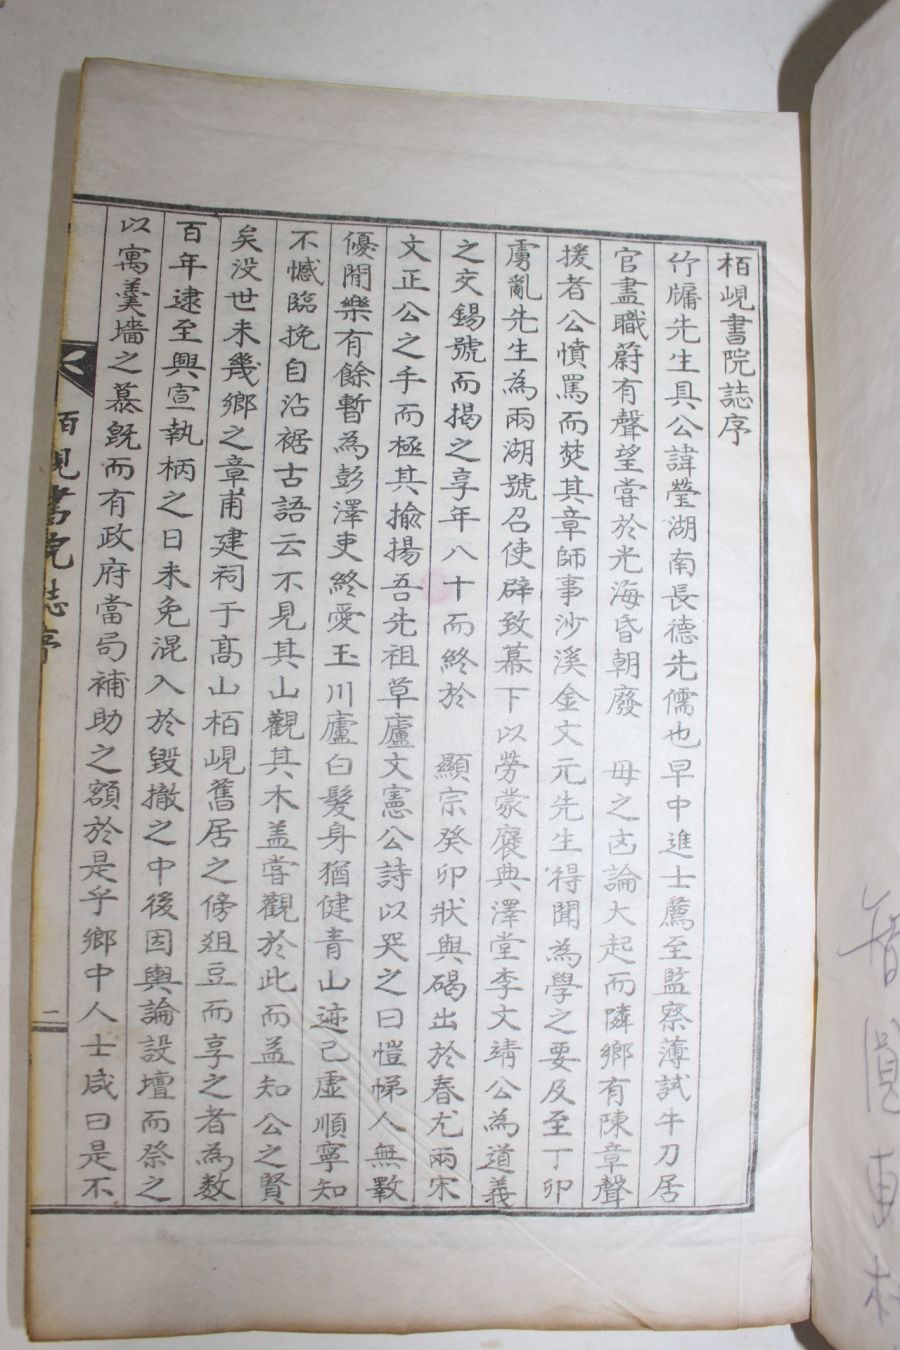 栢峴書院誌序
竹牖先生具公諱瑩湖南長德先儒也早中進士薦至監察薄試牛刀居
官盡職蔚有聲望嘗於光海昏朝廢 母之凶論大起而隣鄉有陳章聲
援者公憤罵而焚其章師事沙溪金文元先生得聞為學之要及至丁卯
虜亂先生為兩湖號召使辟致幕下以勞蒙褒典澤堂李文靖公為道義
之交錫號而揭之享年八十而終於 顯宗癸卯狀與碣出於春尤兩宋
文正公之手而極其揄揚吾先祖草廬文憲公詩以哭之曰愷悌人無斁
優閒樂有餘暫為彭澤吏終愛玉川廬白髮身猶健青山迹已虛順寧知
不憾臨挽自沾裾古語云不見其山觀其木盖嘗觀於此而益知公之賢
矣没世未幾鄉之章甫建祠于高山栢峴舊居之傍俎豆而享之者為数
百年逮至興宣執柄之日未免混入於毀撤之中後因輿論設壇而祭之
以寓羹墻之慕旣而有政府當局補助之額於是乎鄉中人士咸曰是不
栢峴書院誌序
一